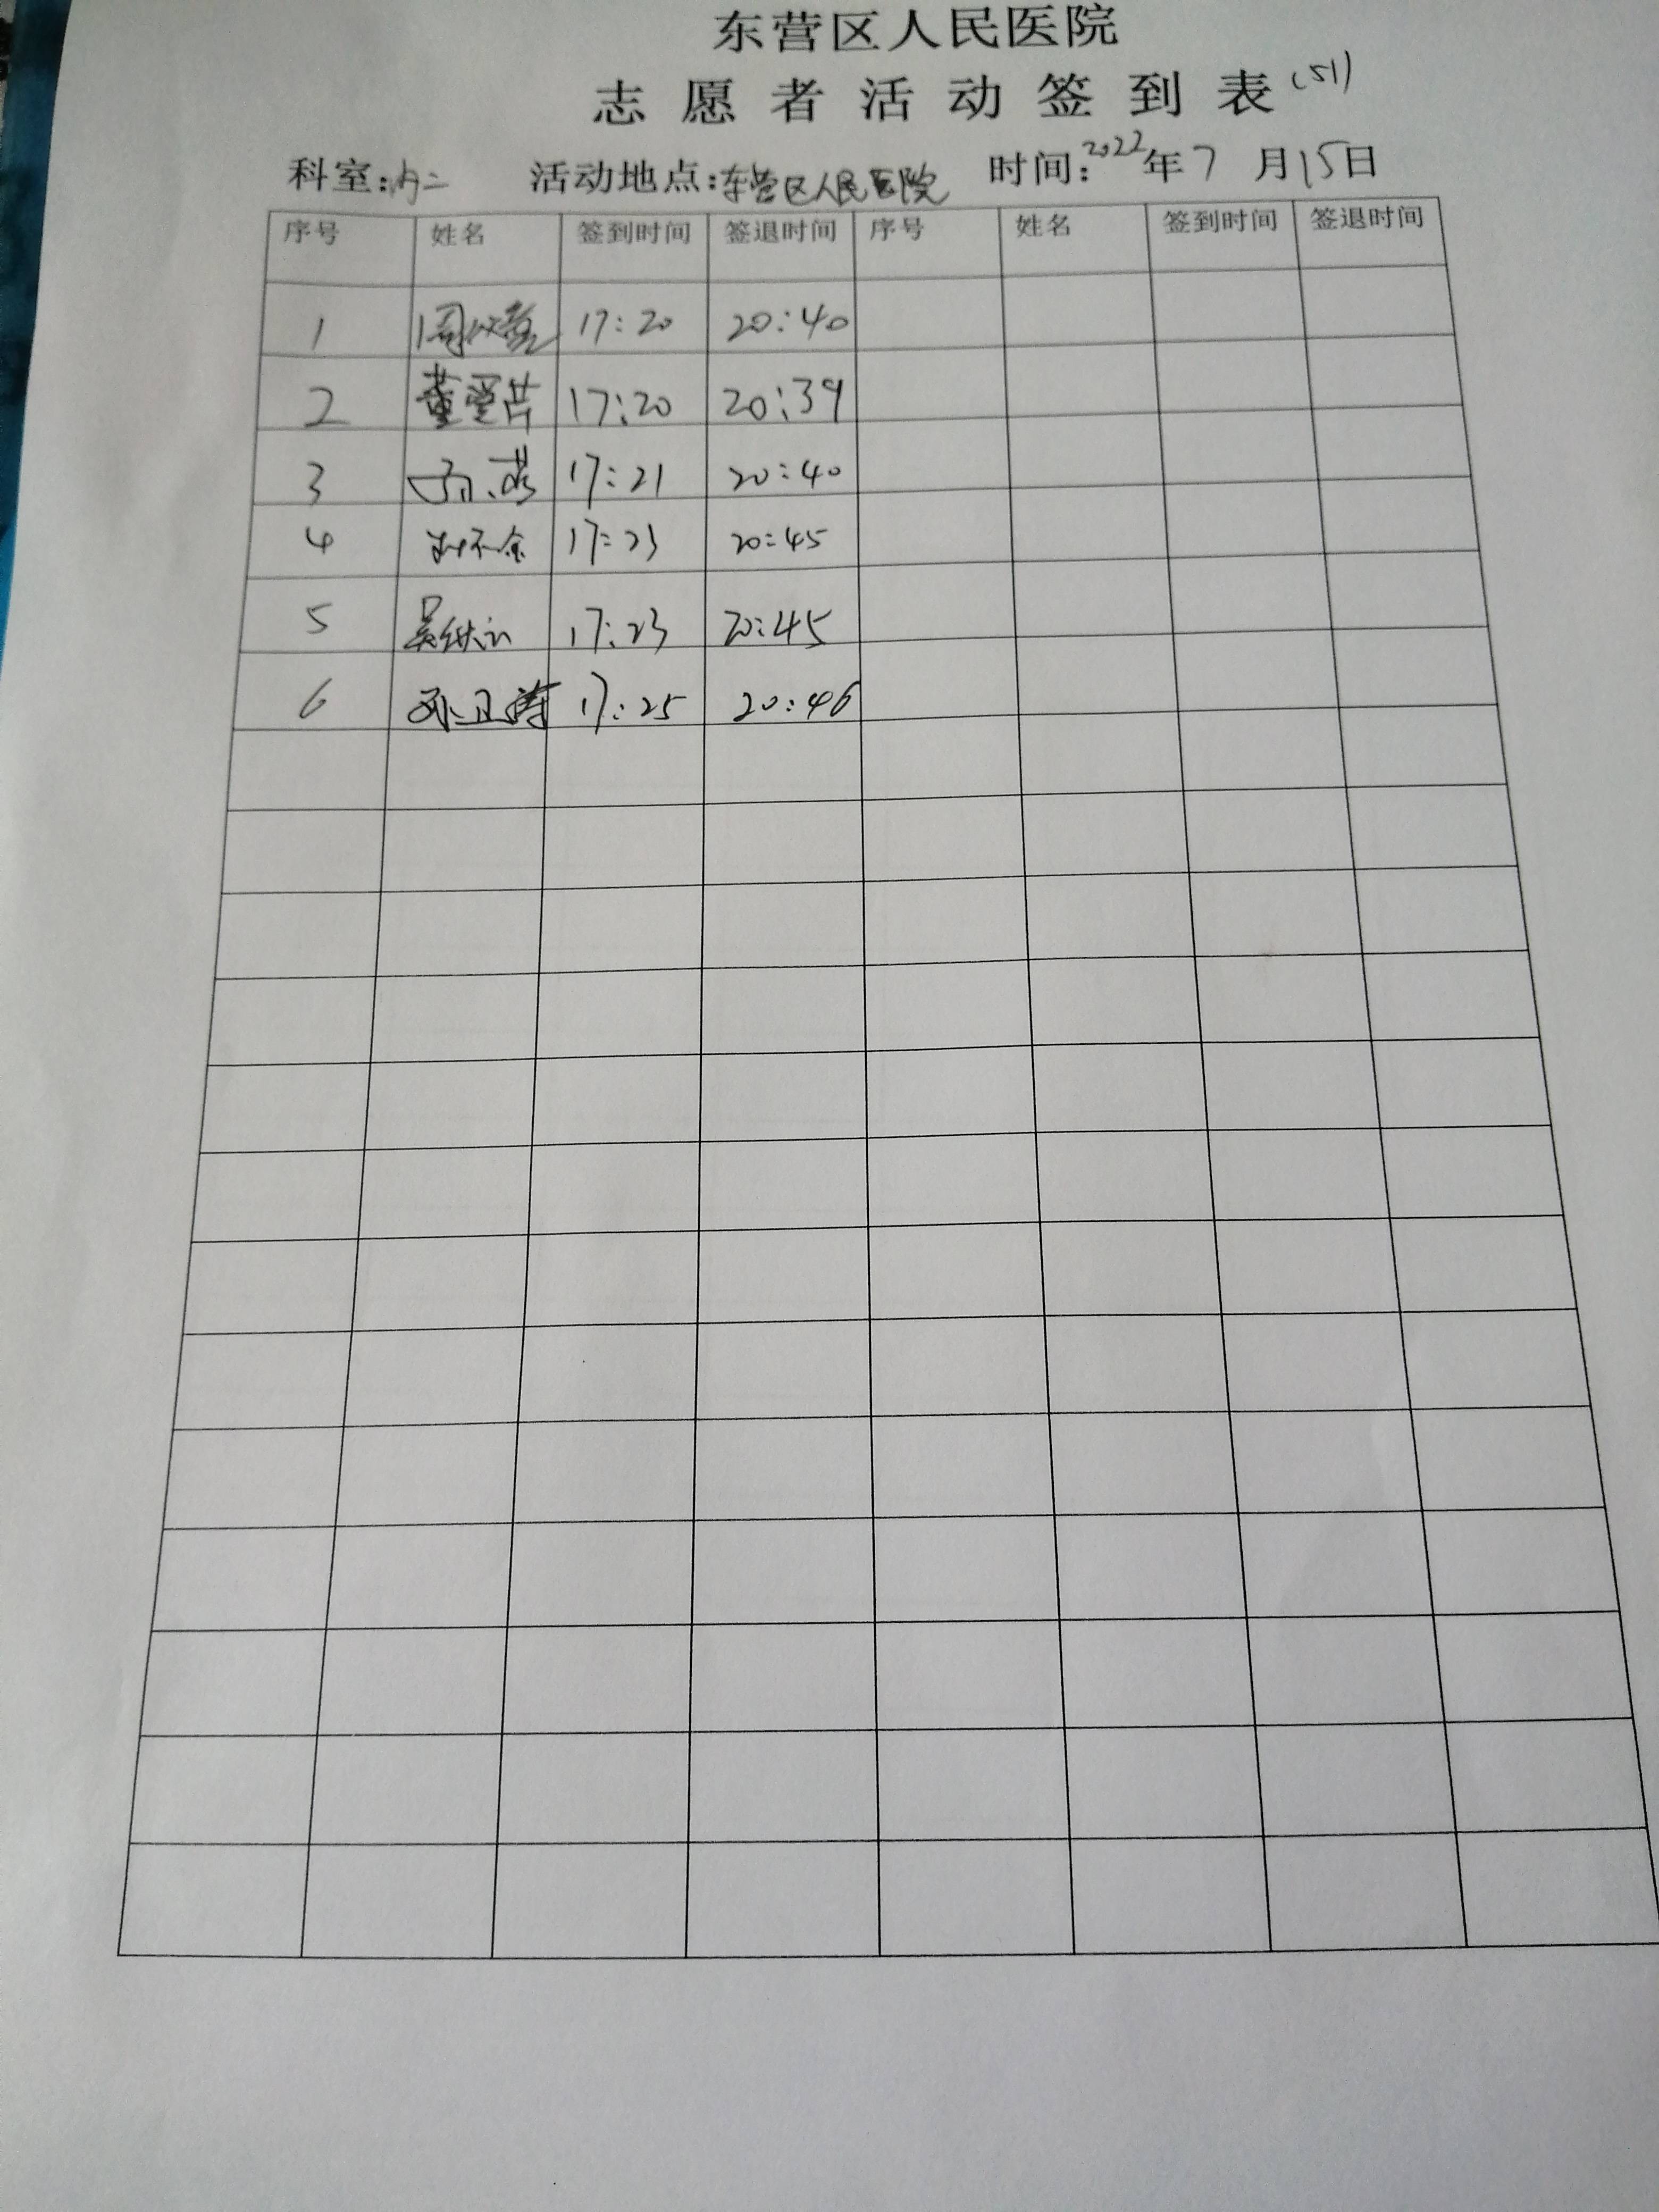 东营区人民医院
志愿者活动签到表(51)
科室:内二 活动地点:东营区人民医院 时间:2022年7月15日
序号 姓名 签到时间 签退时间 序号 姓名 签到时间 签退时间
1 17:20 20:40
2 董爱芸 17:20 20:39
3 孙燕 17:21 20:40
4 17:23 20:45
5 17:23 20:45
6 17:25 20:46